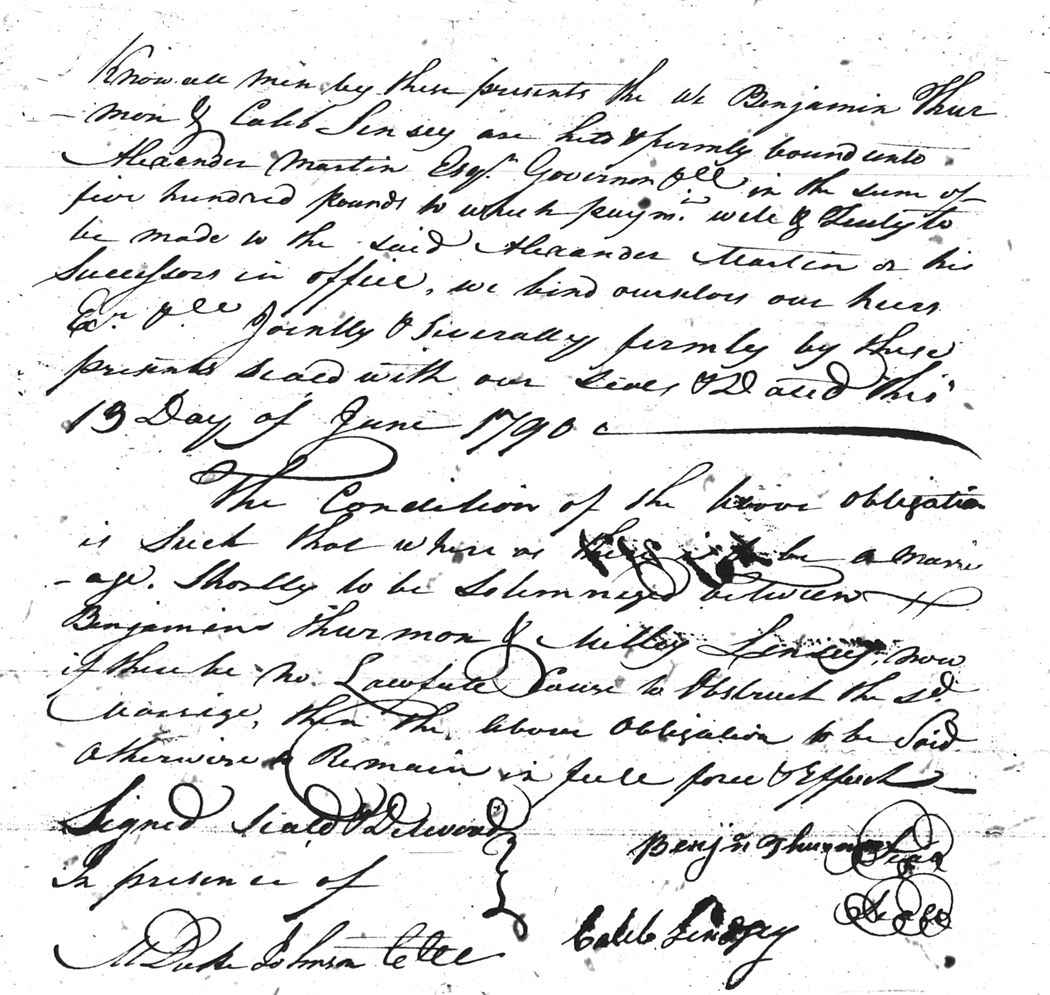 Know all men by these presents the We Benjamin Thur
- mon & Caleb Linsey are held & firmly bound unto
Alexander Martin Esqr. Governor &cc in the sum of
five hundred pounds to which paymt. well & Truly to
be made to the said Alexander Martin or his
Successors in office, we bind ourselves our heirs
Exr. &cc Jointly & Severally firmly by these
presents seald with our Seals, & Dated this
13 Day of June 1790
The Condition of the above obligation
is Such that where as there is to be a marri
- age. Shortly to be Solemnized between
Benjamin Thurmon & Milley Linsey, now
if there be no Lawfull Cause to Obstruct the sd.
Marriage, then the above Obligation to be Void
Otherwise to Remain in full force & Effect
Signed Seald & Deliverd
In presence of
Benjn Thurmon Seal
Caleb Lindsey Seal
M Duke Johnson C